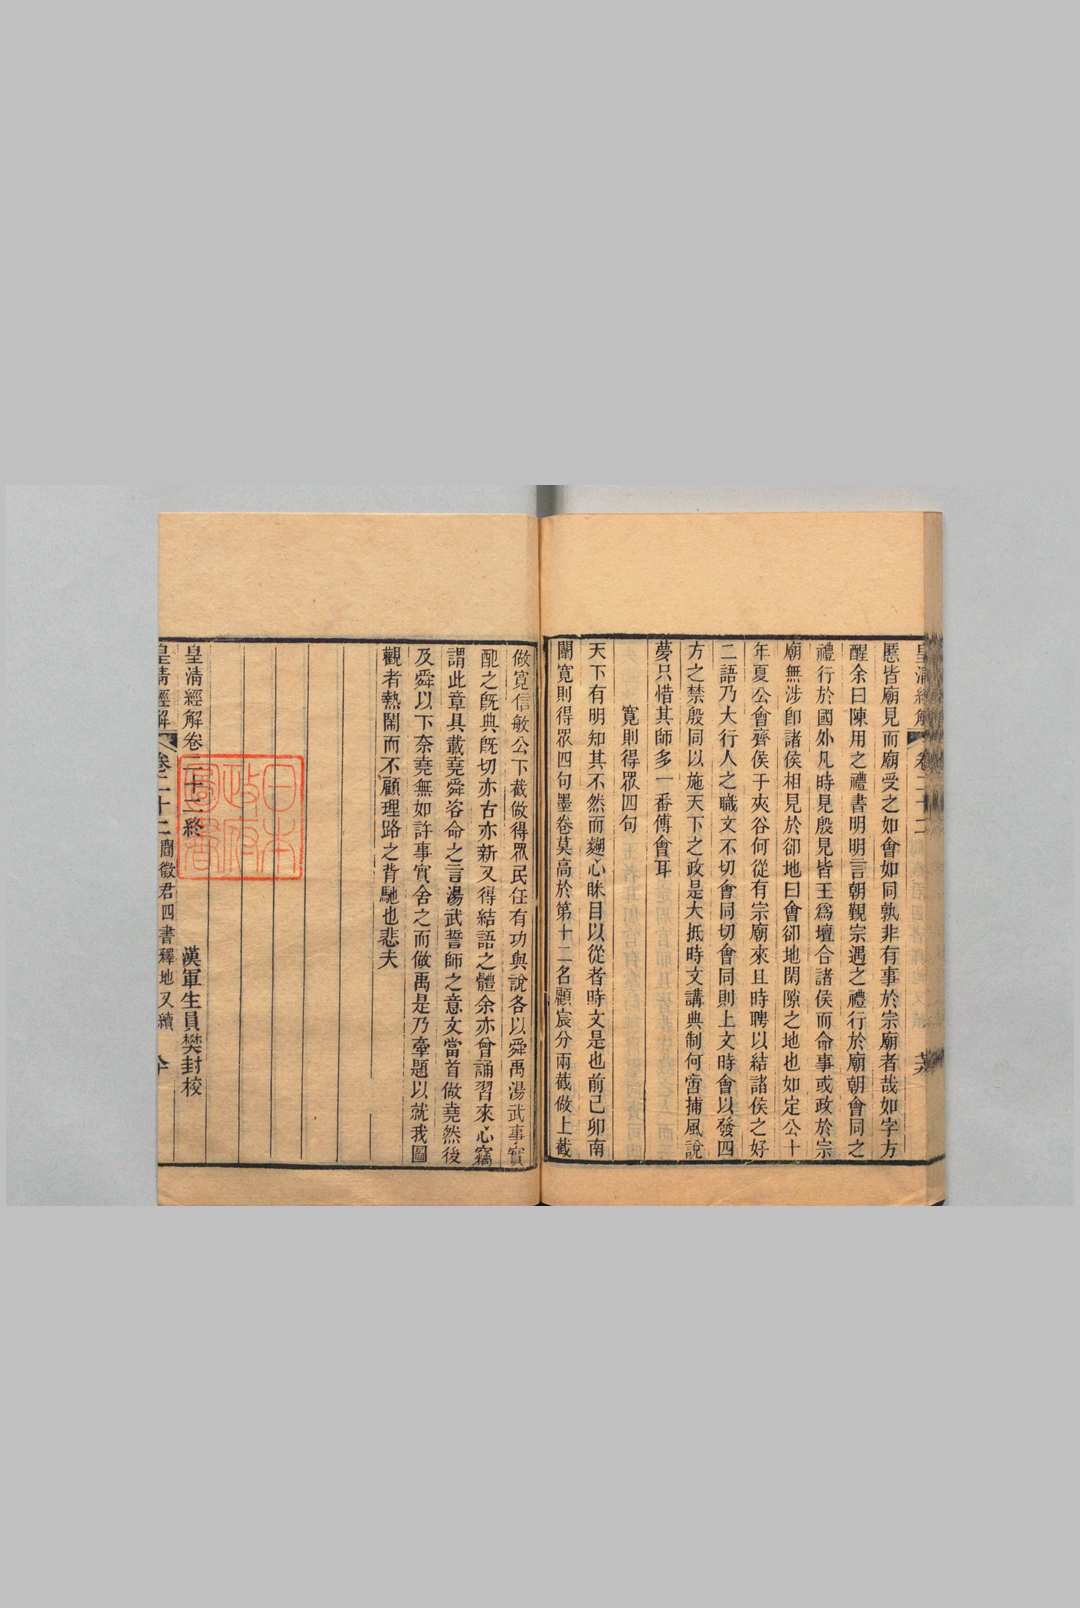 慝皆廟見而廟受之如會如同孰非有事於宗廟者哉如字方
醒余曰陳用之禮書明明言朝覲宗遇之禮行於廟朝會同之
禮行於國外凡時見殷見皆王爲壇合諸侯而命事或政於宗
廟無涉卽諸侯相見於卻地曰會卻地閑隙之地也如定公十
年夏公會齊侯于夾谷何從有宗廟來且時聘以結諸侯之好
二語乃大行人之職文不切會同切會同則上文時會以發四
方之禁殷同以施天下之政是大抵時文講典制何啻捕風說
夢只惜其師多一番傅會耳
寬則得眾四句
天下有明知其不然而𥿄心眯目以從者時文是也前己卯南
闈寬則得眾四句墨卷莫高於第十二名顧宸分兩截做上截
做寬信敏公下截做得眾民任有功與說各以舜禹湯武事實
配之旣典旣切亦古亦新又得結語之體余亦曾誦習來心竊
謂此章具載堯舜咨命之言湯武誓師之意文當首做堯然後
及舜以下奈堯無如許事實舍之而做禹是乃牽題以就我圖
觀者熱鬧而不顧理路之背馳也悲夫
皇清經解卷二十二終
漢軍生員樊封校
皇清經解
卷二十二
閻徵君四書釋地又續
日本
政府
圖書